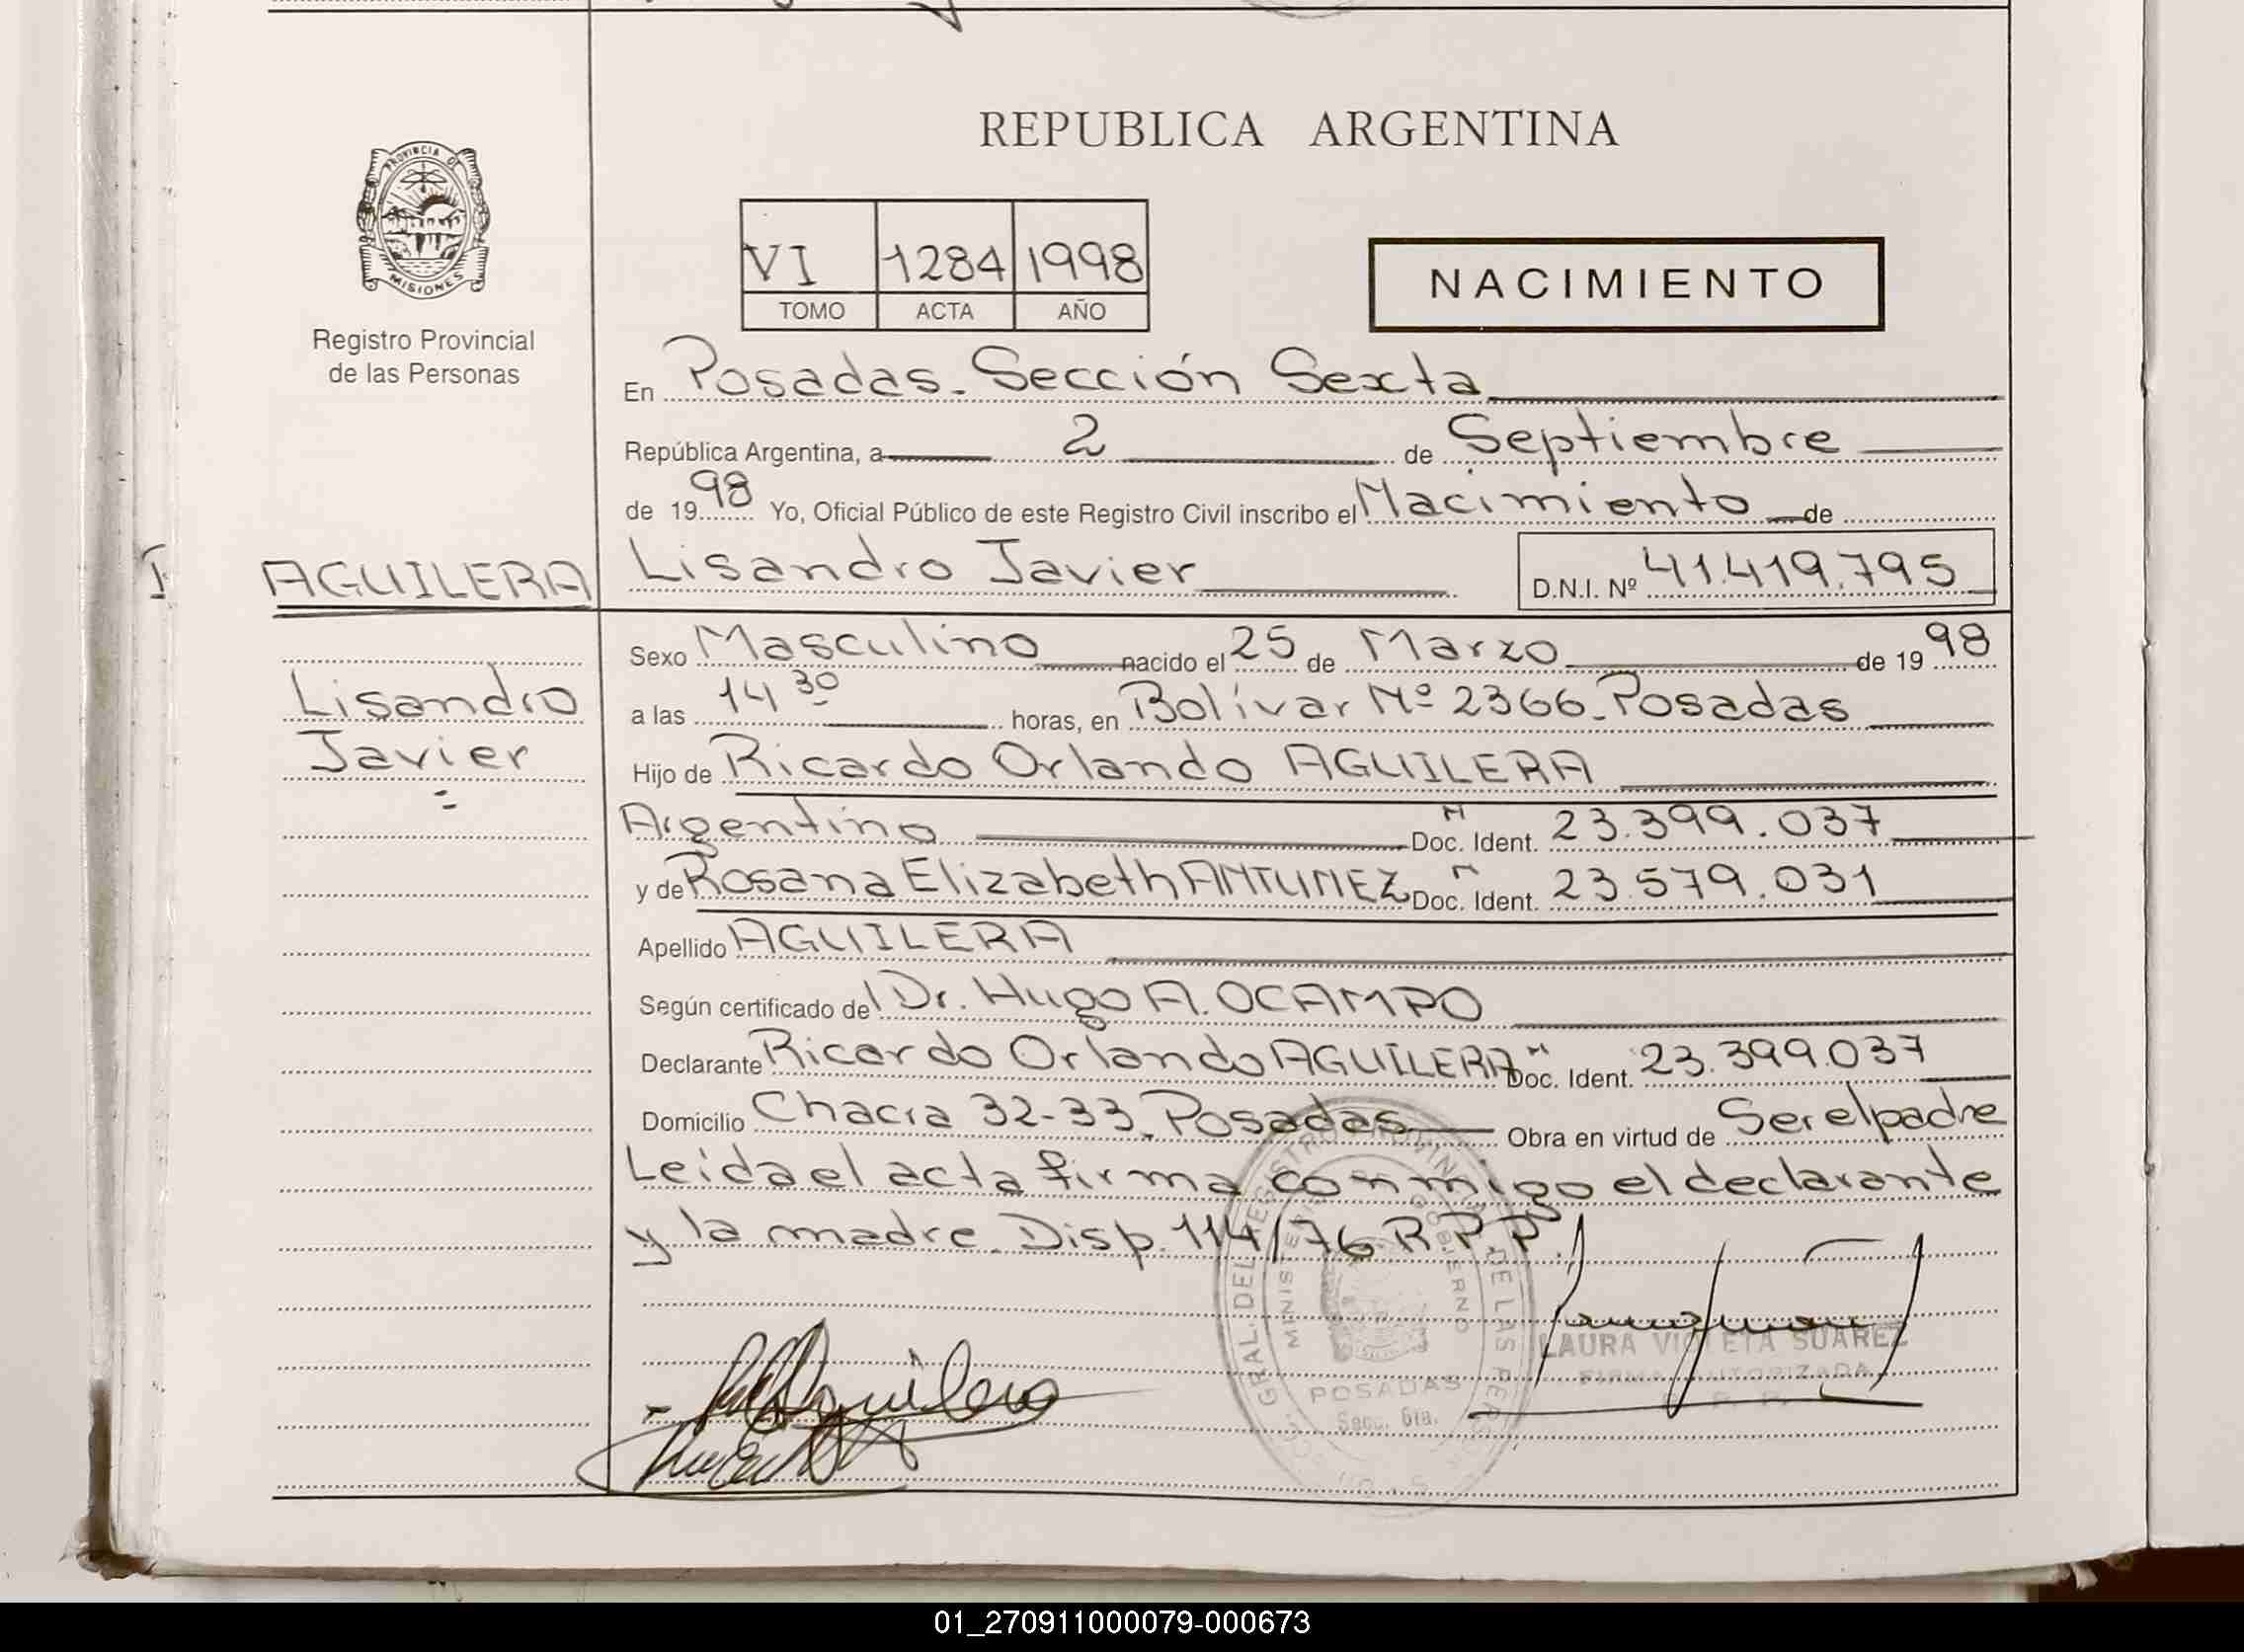 REPUBLICA ARGENTINA
PROVINCIA DE
MISIONES
Registro Provincial
de las Personas
VI 1284 1998
TOMO ACTA AÑO
NACIMIENTO
En Posadas. Sección Sexta
República Argentina, a 2 de Septiembre
de 1998 Yo, Oficial Público de este Registro Civil inscribo el Nacimiento de
AGUILERA
Lisandro Javier D.N.I. Nº 41.419.795
Sexo Masculino nacido el 25 de Marzo de 1998
Lisandro
a las 14 30 horas, en Bolívar Nº 2366. Posadas
Javier
Hijo de Ricardo Orlando AGUILERA
Argentino Doc. Ident. 23.399.037
y de Rosana Elizabeth ANTUNEZ Doc. Ident. 23.579.031
Apellido AGUILERA
Según certificado del Dr. Hugo A. OCAMPO
Declarante Ricardo Orlando AGUILERA Doc. Ident. 23.399.037
Domicilio Chacra 32-33. Posadas Obra en virtud de Ser el padre
Leída el acta firma conmigo el declarante
y la madre. Disp. 114/76 R.P.P.
GRAL. DEL REGISTRO PROVINCIAL DE LAS PERSONAS
MINISTERIO DE GOBIERNO
POSADAS
Secc. 6ta.
LAURA VIOLETA SUAREZ
FIRMA AUTORIZADA
R. P. P.
Aguilera
01_270911000079-000673